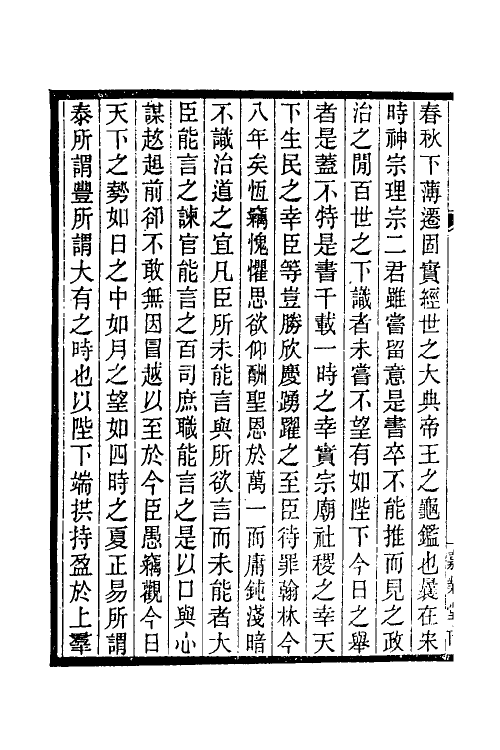 春秋下薄遷固實經世之大典帝王之龜鑑也曩在宋
時神宗理宗二君雖嘗留意是書卒不能推而見之政
治之閒百世之下識者未嘗不望有如陛下今日之舉
者是蓋不特是書千載一時之幸實宗廟社稷之幸天
下生民之幸臣等豈勝欣慶踴躍之至臣待罪翰林今
八年矣恆竊愧懼思欲仰酬聖恩於萬一而庸鈍淺暗
不識治道之宜凡臣所未能言與所欲言而未能者大
臣能言之諫官能言之百司庶職能言之是以口與心
謀趑趄前卻不敢無因冒越以至於今臣愚竊觀今日
天下之勢如日之中如月之望如四時之夏正易所謂
泰所謂豐所謂大有之時也以陛下端拱持盈於上羣